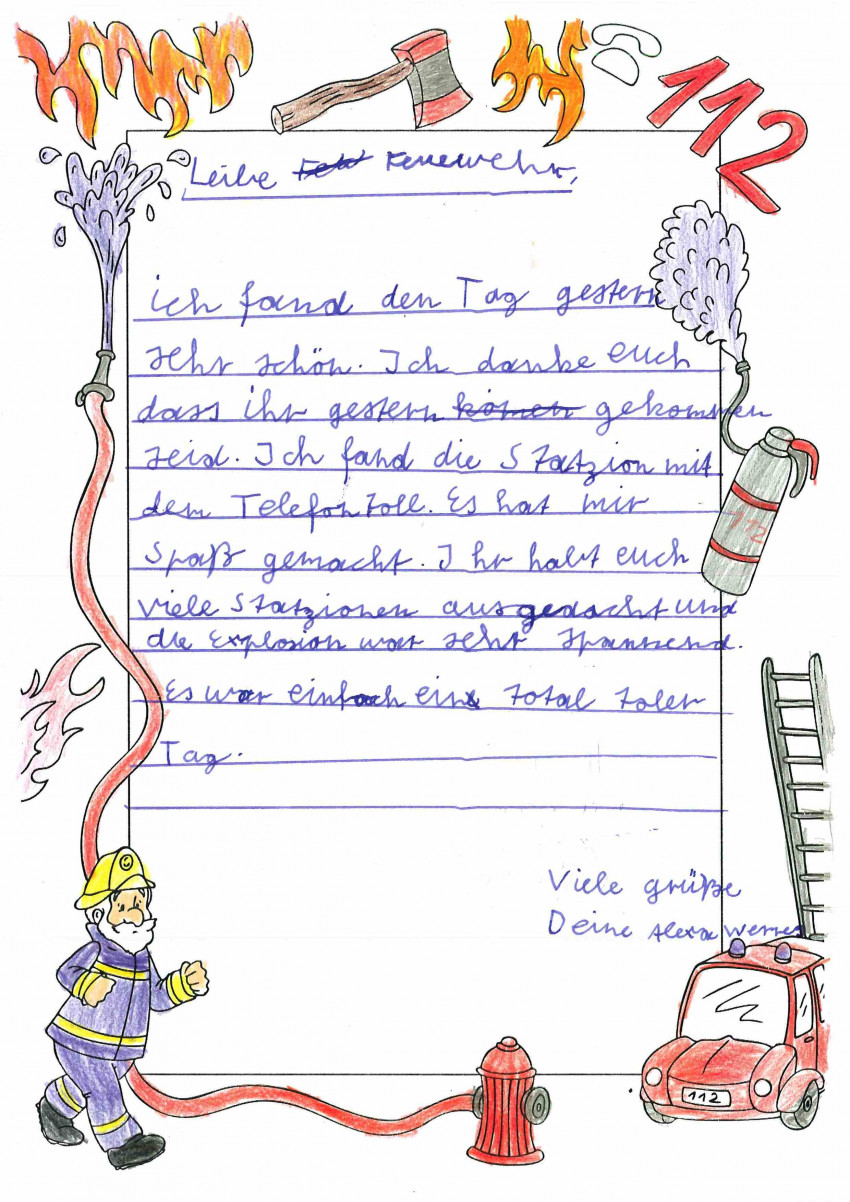 112
Leibe Feuewehr,
ich fand den Tag gestern
sehr schön. Ich danke euch
dass ihr gestern kömen gekommen
seid. Ich fand die Statzion mit
dem Telefon toll. Es hat mir
Spaß gemacht. Ihr habt euch
viele Statzionen ausgedacht und
die Explosion war sehr spannend.
Es war einfach ein total toler
Tag.
112
Viele grüße
Deine Alexa
112